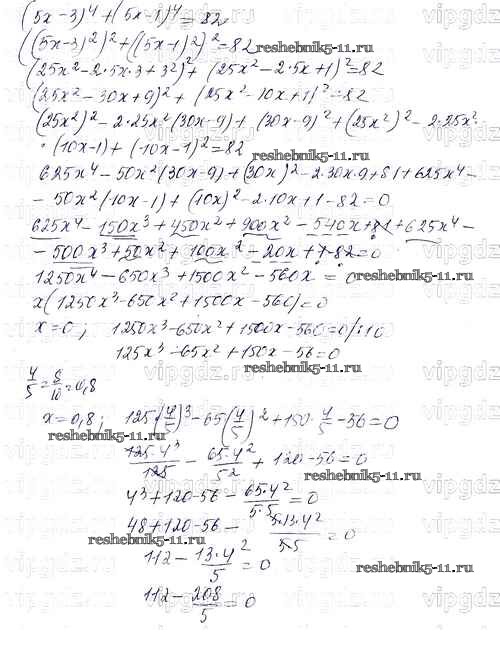 (5x-3)⁴+(5x-1)⁴=82
((5x-3)²)²+((5x-1)²)²=82
reshebnik5-11.ru
(25x²-2·5x·3+3²)²+(25x²-2·5x+1)²=82
(25x²-30x+9)²+(25x²-10x+1)²=82
(25x²)²-2·25x²(30x-9)+(30x-9)²+(25x²)²-2·25x²·
·(10x-1)+(-10x-1)²=82
reshebnik5-11.ru
625x⁴-50x²(30x-9)+(30x)²-2·30x·9+81+625x⁴-
-50x²(10x-1)+(10x)²-2·10x+1-82=0
625x⁴-150x³+450x²+900x²-540x+81+625x⁴-
-500x³+50x²+100x²-20x+1-82=0
1250x⁴-650x³+1500x²-560x=0
x(1250x³-650x²+1500x-560)=0
x=0; 1250x³-650x²+1500x-560=0/:10
125x³-65x²+150x-56=0
4/5=8/10=0,8
x=0,8; 125·(4/5)³-65(4/5)²+150·4/5-56=0
reshebnik5-11.ru
125·4³/125-65·4²/5²+120-56=0
reshebnik5-11.ru
4³+120-56-65·4²/5·5=0
48+120-56-5·13·4²/5·5=0
reshebnik5-11.ru
112-13·4²/5=0
reshebnik5-11.ru
112-208/5=0